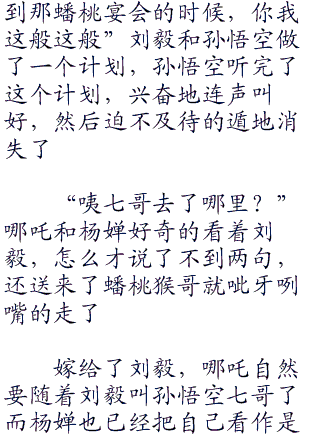 到那蟠桃宴会的时候，你我
这般这般”刘毅和孙悟空做
了一个计划，孙悟空听完了
这个计划，兴奋地连声叫
好，然后迫不及待的遁地消
失了
“咦七哥去了哪里？”
哪吒和杨婵好奇的看着刘
毅，怎么才说了不到两句，
还送来了蟠桃猴哥就呲牙咧
嘴的走了
嫁给了刘毅，哪吒自然
要随着刘毅叫孙悟空七哥了
而杨婵也已经把自己看作是